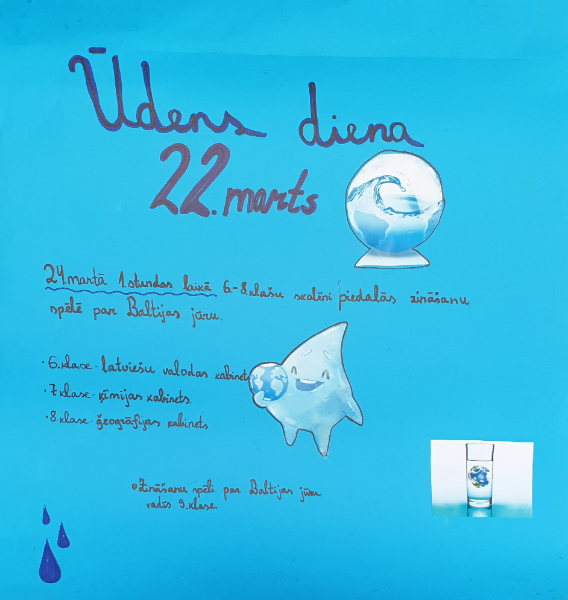 Ūdens diena
22. marts
24. martā 1. stundas laikā 6.-8. klašu skolēni piedalās zināšanu
spēlē par Baltijas jūru.
· 6. klase - latviešu valodas kabinets
· 7. klase - ķīmijas kabinets.
· 8. klase - ģeogrāfijas kabinets
• Zināšanu spēli par Baltijas jūru
vadīs 9. klase.